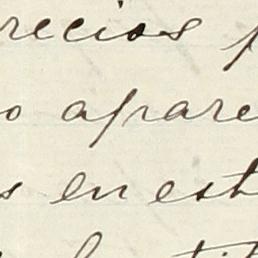 recios p
o apare
s en est